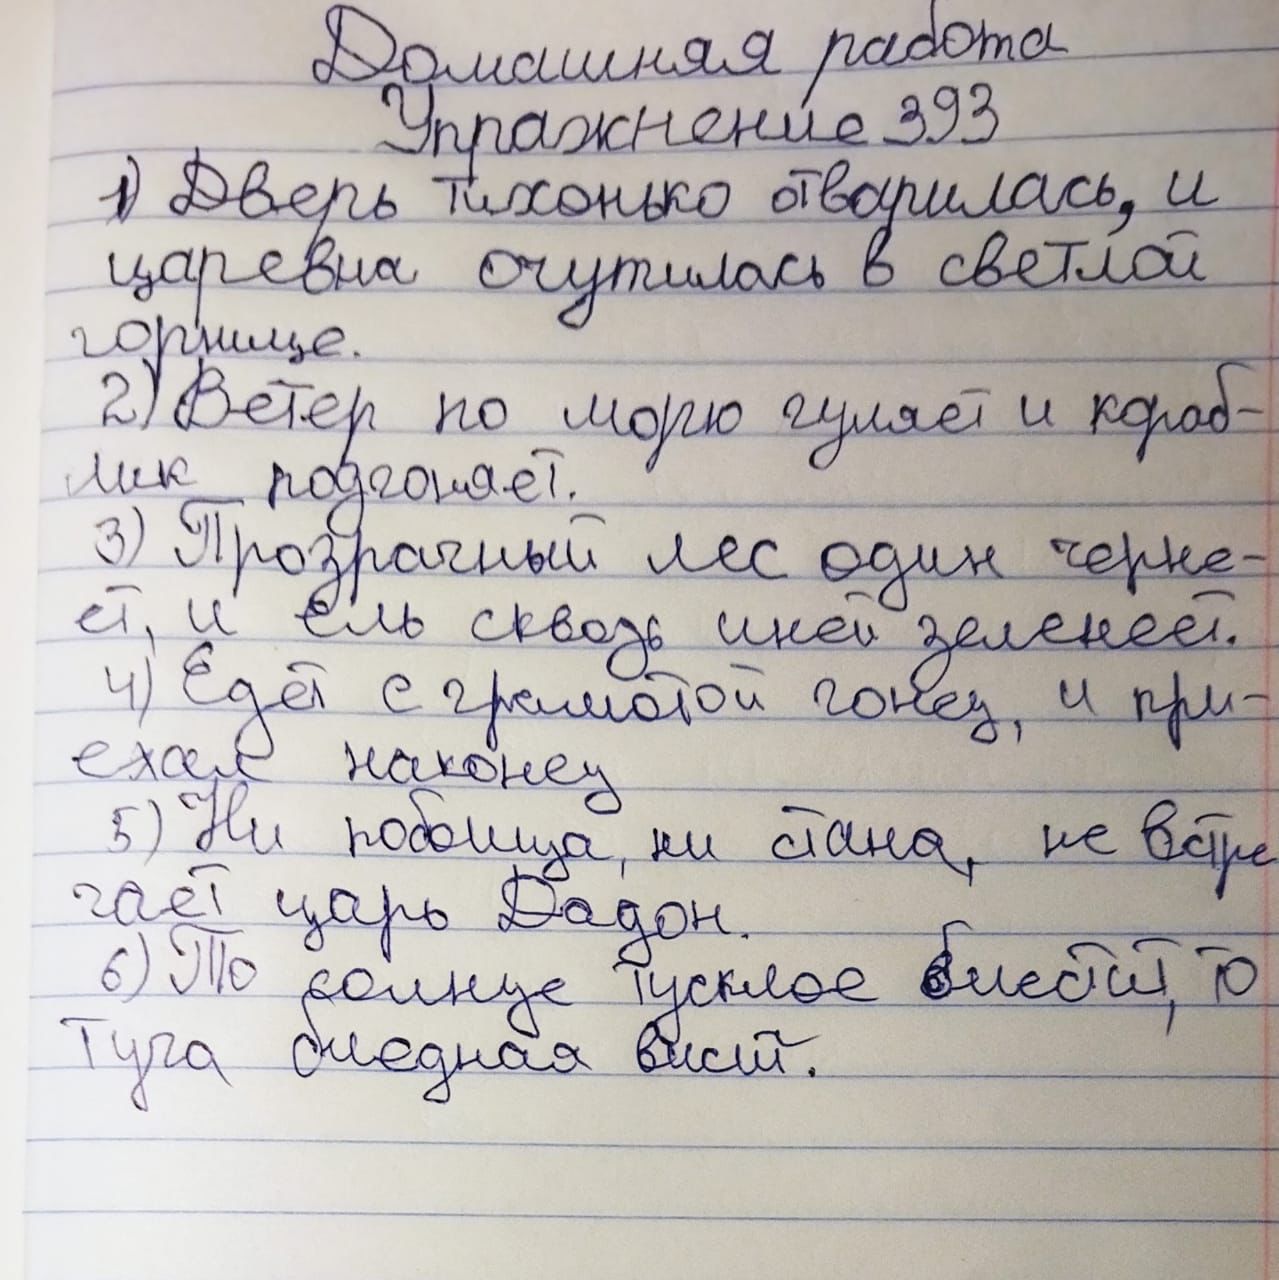 Домашняя работа
Упражнение 393
1) Дверь тихонько отварилась, и
царевна очутилась в светлой
горнице.
2) Ветер по морю гуляет и кораб-
лик подгоняет.
3) Прозрачный лес один черне-
ет, и ель сквозь иней зеленеет.
4) Едет с грамотой гонец, и при-
ехал наконец
5) Ни побоища, ни стана, не встре
чает царь Дадон.
6) То солнце тусклое блестит, то
туча бледная висит.